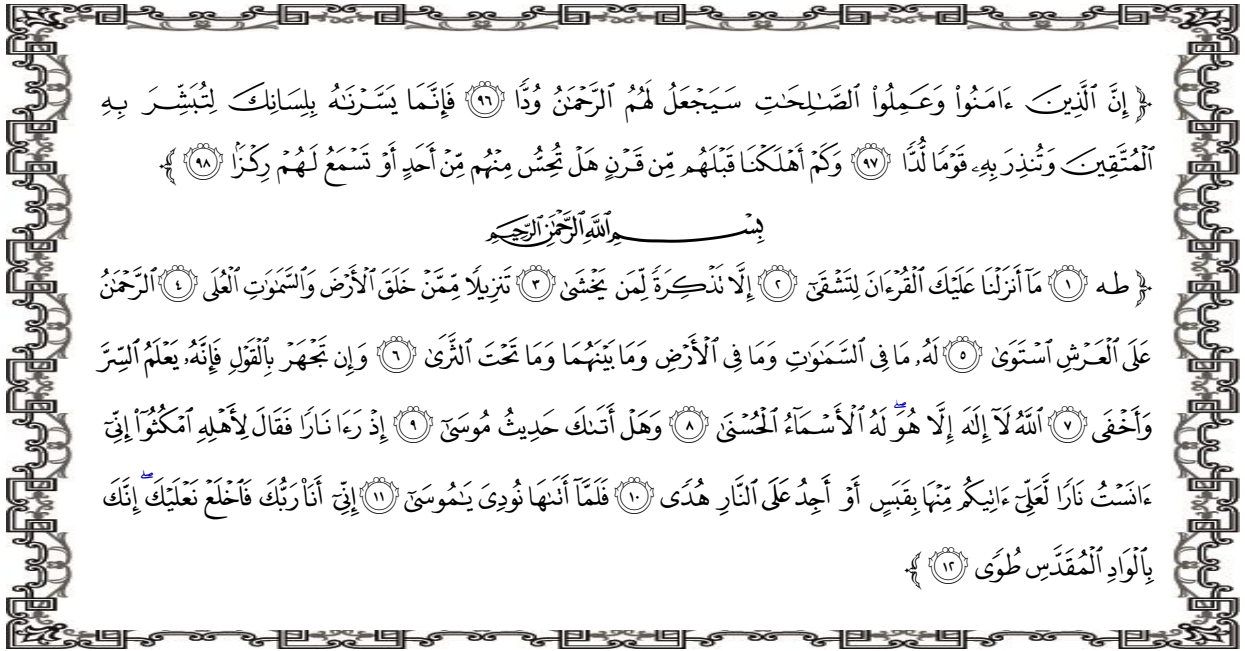 ﴿ إِنَّ ٱلَّذِينَ ءَامَنُواْ وَعَمِلُواْ ٱلصَّـٰلِحَـٰتِ سَيَجْعَلُ لَهُمُ ٱلرَّحْمَـٰنُ وُدًّا ٩٦ فَإِنَّمَا يَسَّرْنَـٰهُ بِلِسَانِكَ لِتُبَشِّرَ بِهِ
ٱلْمُتَّقِينَ وَتُنذِرَ بِهِۦ قَوْمًا لُّدًّا ٩٧ وَكَمْ أَهْلَكْنَا قَبْلَهُم مِّن قَرْنٍ هَلْ تُحِسُّ مِنْهُم مِّنْ أَحَدٍ أَوْ تَسْمَعُ لَهُمْ رِكْزًۢا ٩٨ ﴾
بِسْمِ ٱللَّهِ ٱلرَّحْمَـٰنِ ٱلرَّحِيمِ
﴿ طه ١ مَآ أَنزَلْنَا عَلَيْكَ ٱلْقُرْءَانَ لِتَشْقَىٰٓ ٢ إِلَّا تَذْكِرَةً لِّمَن يَخْشَىٰ ٣ تَنزِيلًا مِّمَّنْ خَلَقَ ٱلْأَرْضَ وَٱلسَّمَـٰوَٰتِ ٱلْعُلَى ٤ ٱلرَّحْمَـٰنُ
عَلَى ٱلْعَرْشِ ٱسْتَوَىٰ ٥ لَهُۥ مَا فِى ٱلسَّمَـٰوَٰتِ وَمَا فِى ٱلْأَرْضِ وَمَا بَيْنَهُمَا وَمَا تَحْتَ ٱلثَّرَىٰ ٦ وَإِن تَجْهَرْ بِٱلْقَوْلِ فَإِنَّهُۥ يَعْلَمُ ٱلسِّرَّ
وَأَخْفَى ٧ ٱللَّهُ لَآ إِلَـٰهَ إِلَّا هُوَ ۖ لَهُ ٱلْأَسْمَآءُ ٱلْحُسْنَىٰ ٨ وَهَلْ أَتَىٰكَ حَدِيثُ مُوسَىٰٓ ٩ إِذْ رَءَا نَارًا فَقَالَ لِأَهْلِهِ ٱمْكُثُوٓاْ إِنِّىٓ
ءَانَسْتُ نَارًا لَّعَلِّىٓ ءَاتِيكُم مِّنْهَا بِقَبَسٍ أَوْ أَجِدُ عَلَى ٱلنَّارِ هُدًى ١٠ فَلَمَّآ أَتَىٰهَا نُودِىَ يَـٰمُوسَىٰٓ ١١ إِنِّىٓ أَنَا۠ رَبُّكَ فَٱخْلَعْ نَعْلَيْكَ ۖ إِنَّكَ
بِٱلْوَادِ ٱلْمُقَدَّسِ طُوًى ١٢ ﴾